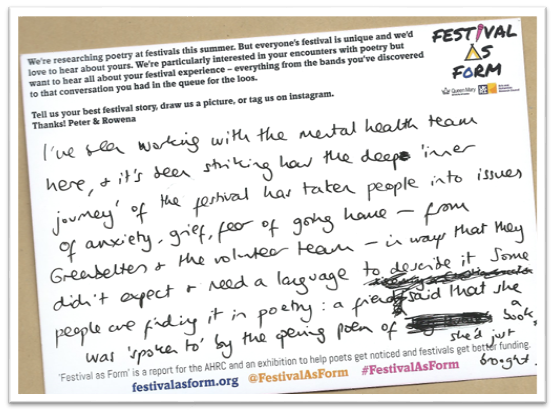 We're researching poetry at festivals this summer. But everyone's festival is unique and we'd
love to hear about yours. We're particularly interested in your encounters with poetry but
want to hear all about your festival experience – everything from the bands you've discovered
to that conversation you had in the queue for the loos.
Tell us your best festival story, draw us a picture, or tag us on instagram.
Thanks! Peter & Rowena
FESTIVAL
AS
FORM
Queen Mary
I've been working with the mental health team
here, & it's been striking how the deep 'inner
journey' of the festival has taken people into issues
of anxiety, grief, fear of going home – from
Greenbelters & the volunteer team – in ways that they
didn't expect & need a language to describe it. Some
people are finding it in poetry: a friend said that she
was 'spoken to' by the opening poem of a book,
she'd just
brought.
'Festival as Form' is a report for the AHRC and an exhibition to help poets get noticed and festivals get better funding.
festivalasform.org @FestivalAsForm #FestivalAsForm